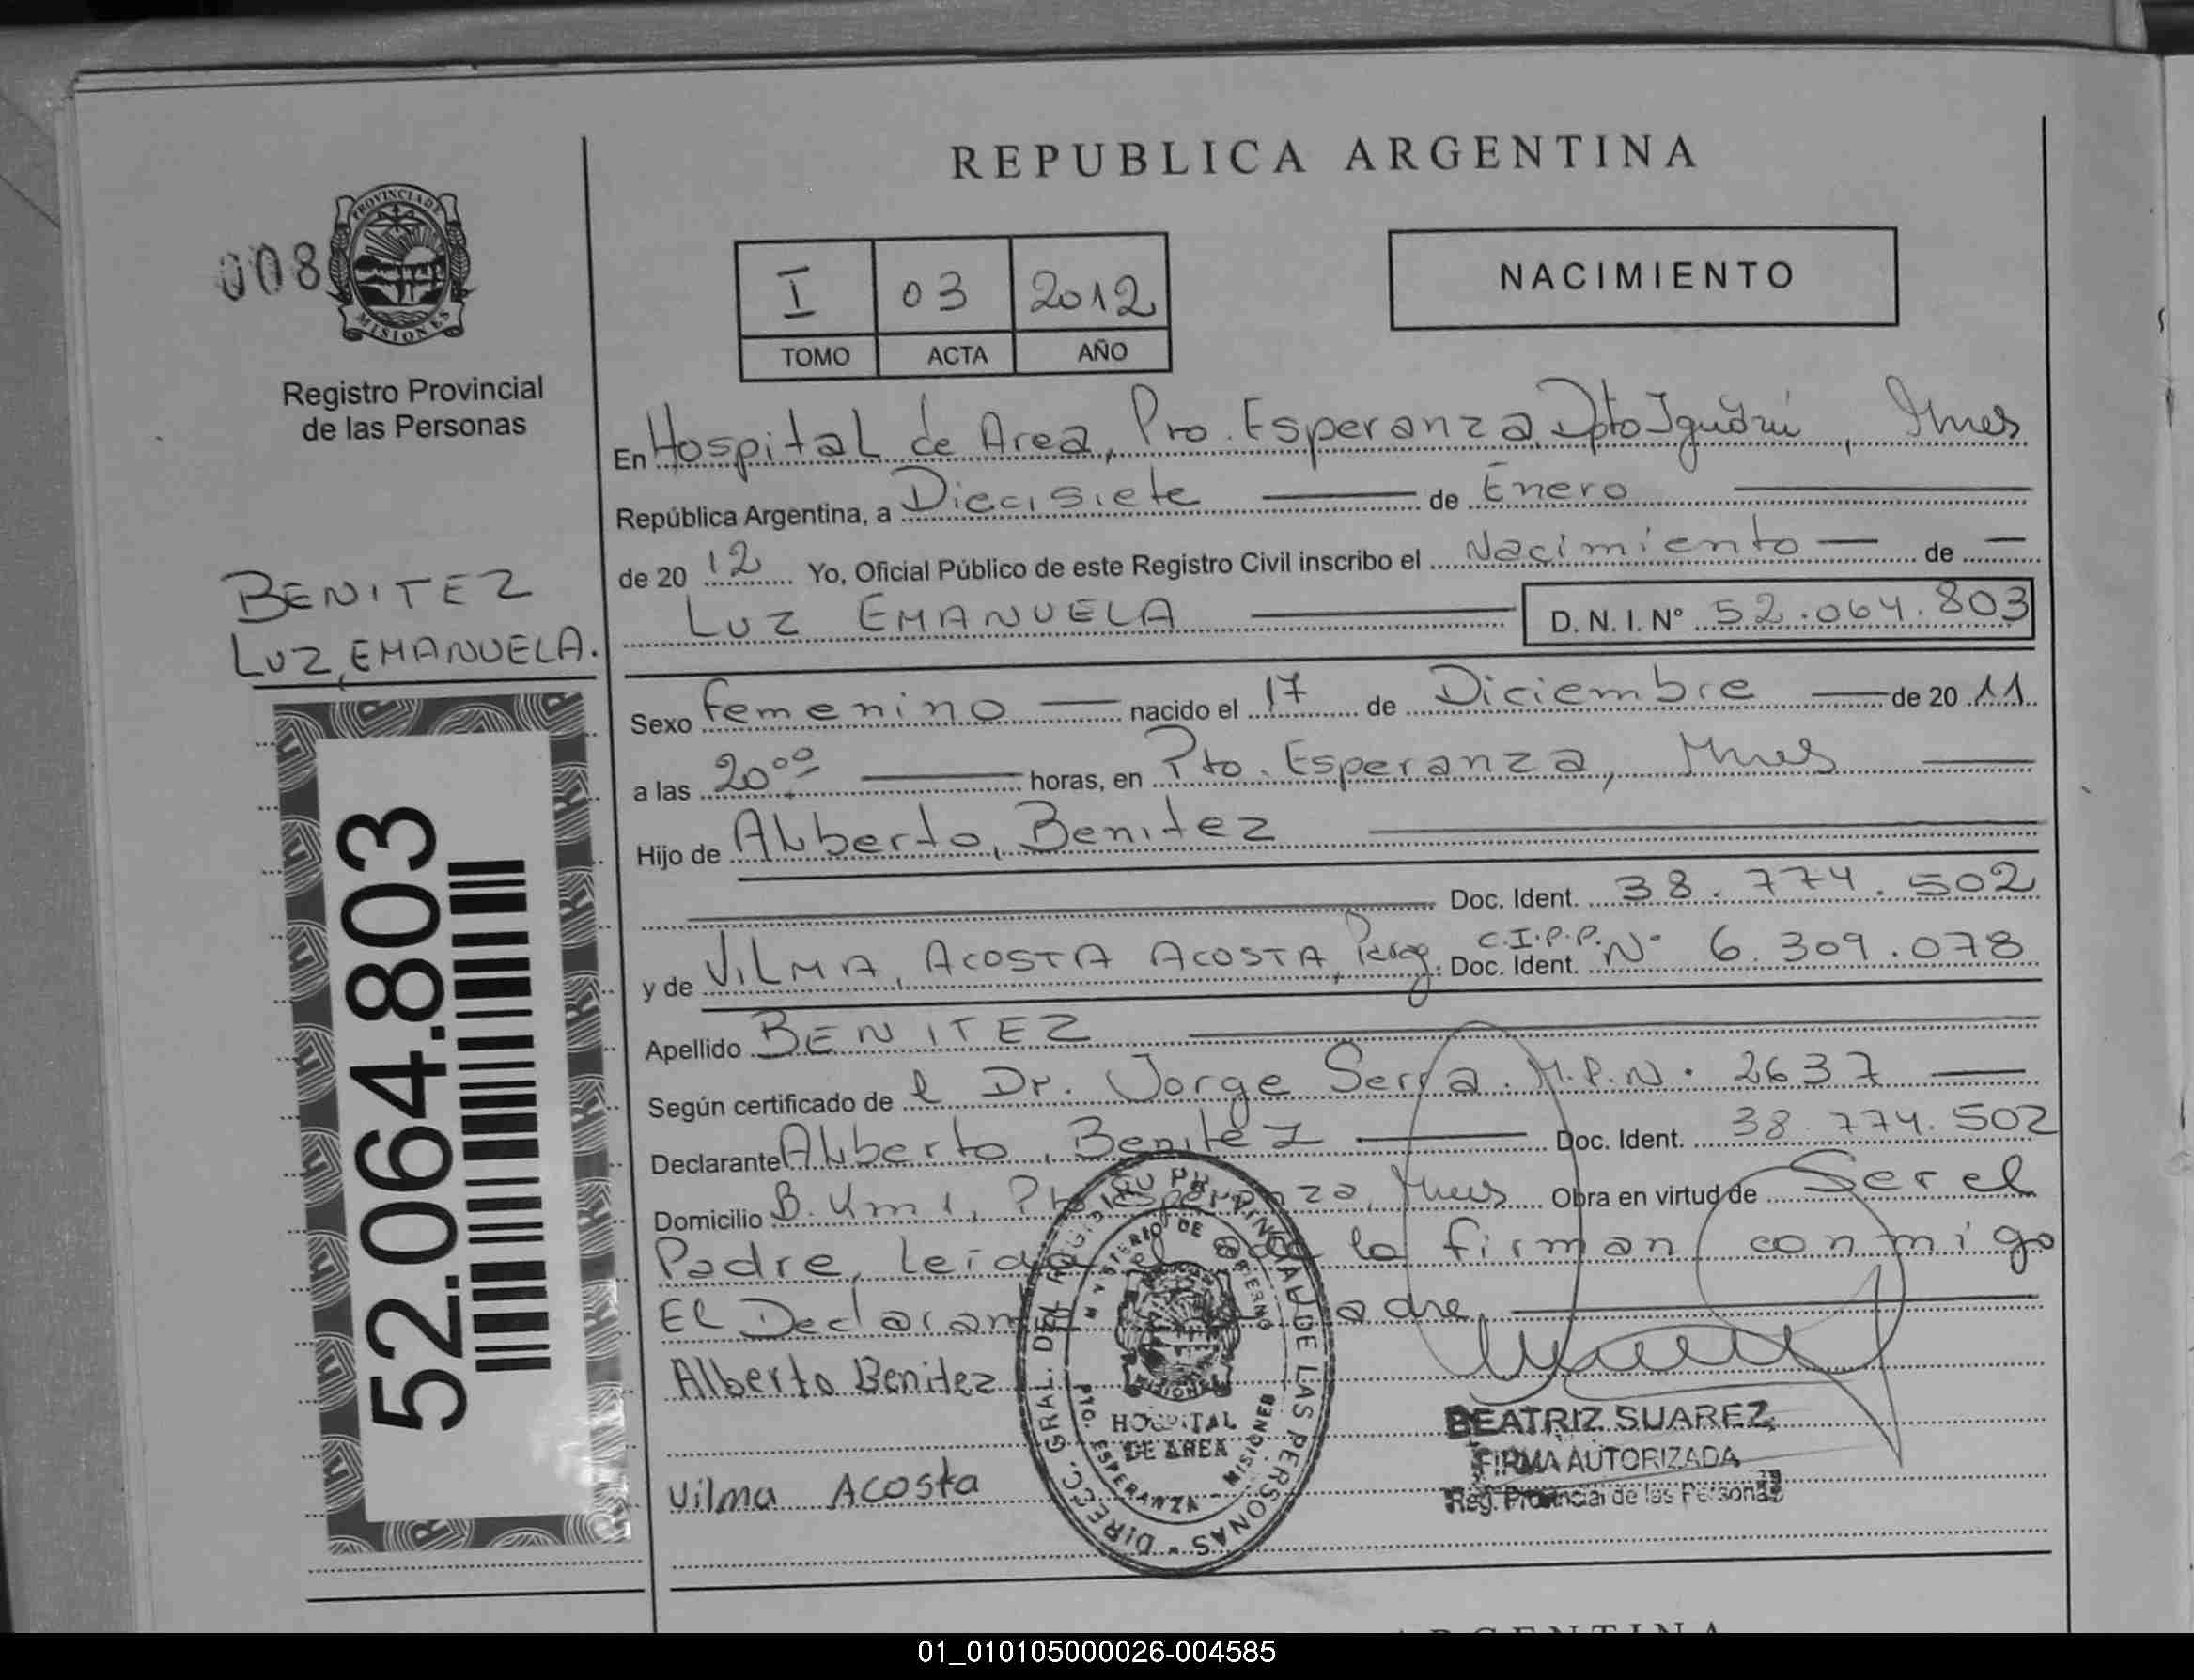 REPUBLICA ARGENTINA
008
PROVINCIA DE
MISIONES
Registro Provincial
de las Personas
I 03 2012
TOMO ACTA AÑO
NACIMIENTO
BENITEZ
LUZ, EMANUELA.
52.064.803
En Hospital de Area, Pto. Esperanza Dpto Iguazú, Mnes
República Argentina, a Diecisiete de Enero
de 20 12 Yo, Oficial Público de este Registro Civil inscribo el Nacimiento de
LUZ EMANUELA D. N. I. Nº 52.064.803
Sexo femenino nacido el 17 de Diciembre de 20 11
a las 20 00 horas, en Pto. Esperanza, Mnes
Hijo de Alberto, Benitez
Doc. Ident. 38.774.502
y de VILMA, ACOSTA ACOSTA, Parag. Doc. Ident. C.I.P.P. Nº 6.309.078
Apellido BENITEZ
Según certificado de el Dr. Jorge Serra. M.P.N. 2637
Declarante Alberto, Benitez Doc. Ident. 38.774.502
Domicilio B. Km 1, Pto Esperanza, Mnes Obra en virtud de Ser el
Padre, leída el acta la firman conmigo
El Declarante madre,
Alberto Benitez
Vilma Acosta
DIRECC. GRAL. DEL REGISTRO PROVINCIAL DE LAS PERSONAS
MINISTERIO DE GOBIERNO
MISIONES
HOSPITAL
DE AREA
PTO. ESPERANZA - MISIONES
BEATRIZ SUAREZ
FIRMA AUTORIZADA
Reg. Provincial de las Personas
ARGENTINA
01_010105000026-004585